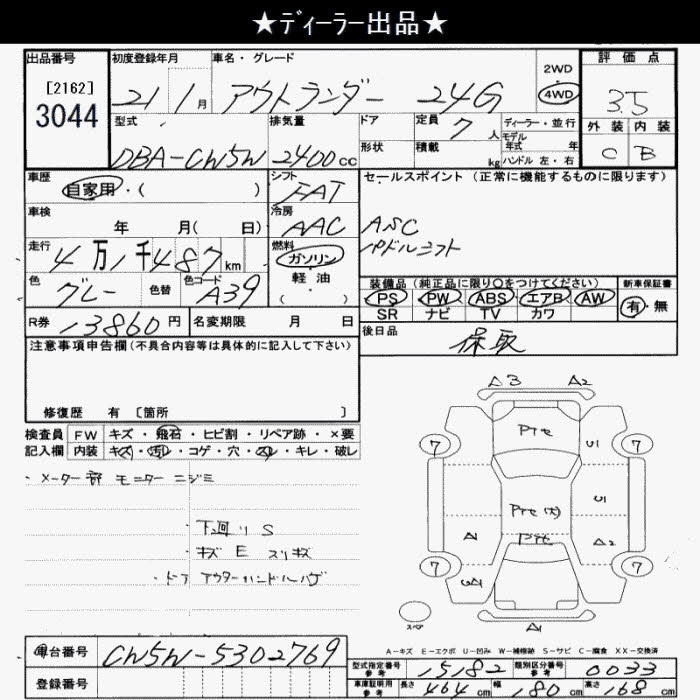 ★ディーラー出品★
出品番号 初度登録年月 車名・グレード 2WD 評価点
[2162] 21 1月 アウトランダー 24G 4WD 3.5
3044 型式 排気量 ドア 定員 7人 ディーラー・並行 外装 内装
モデル
DBA-CW5W 2400cc 形状 積載 kg 年式 年 C B
ハンドル 左・右
車歴 シフト セールスポイント(正常に機能するものに限ります)
自家用・( ) FAT
車検 冷房 ASC
年 月( 日) AAC パドルシフト
走行 燃料
4万1千487km ガソリン
色 色替 色コード 軽油 装備品(純正品に限り○をつけてください) 新車保証書
グレー A39 ( ) PS PW ABS エアB AW 有・無
SR ナビ TV カワ
R券 13860円 名変期限 月 日 後日品
注意事項申告欄(不具合内容等は具体的に記入して下さい) 保取
修復歴 有 [箇所 ]
A3 A2
検査員 FW キズ・飛石・ヒビ割・リペア跡・×要
記入欄 内装 キズ・汚レ・コゲ・穴・スレ・キレ・破レ
7 Pte U1 7
・メーター部 モニター ニジミ
U1
・下廻り S Pte(大)
・キズ E スリキズ A1 Pte A2
・ドア アウターハンドルハゲ 7 7
スペア A1
A-キズ E-エクボ U-凹み W-補修跡 S-サビ C-腐食 XX-交換済
車台番号 CW5W-5302769 型式指定番号 15182 類別区分番号 0033
参考 参考
登録番号 車庫証明用 長さ 464cm 幅 180cm 高さ 168cm
参考